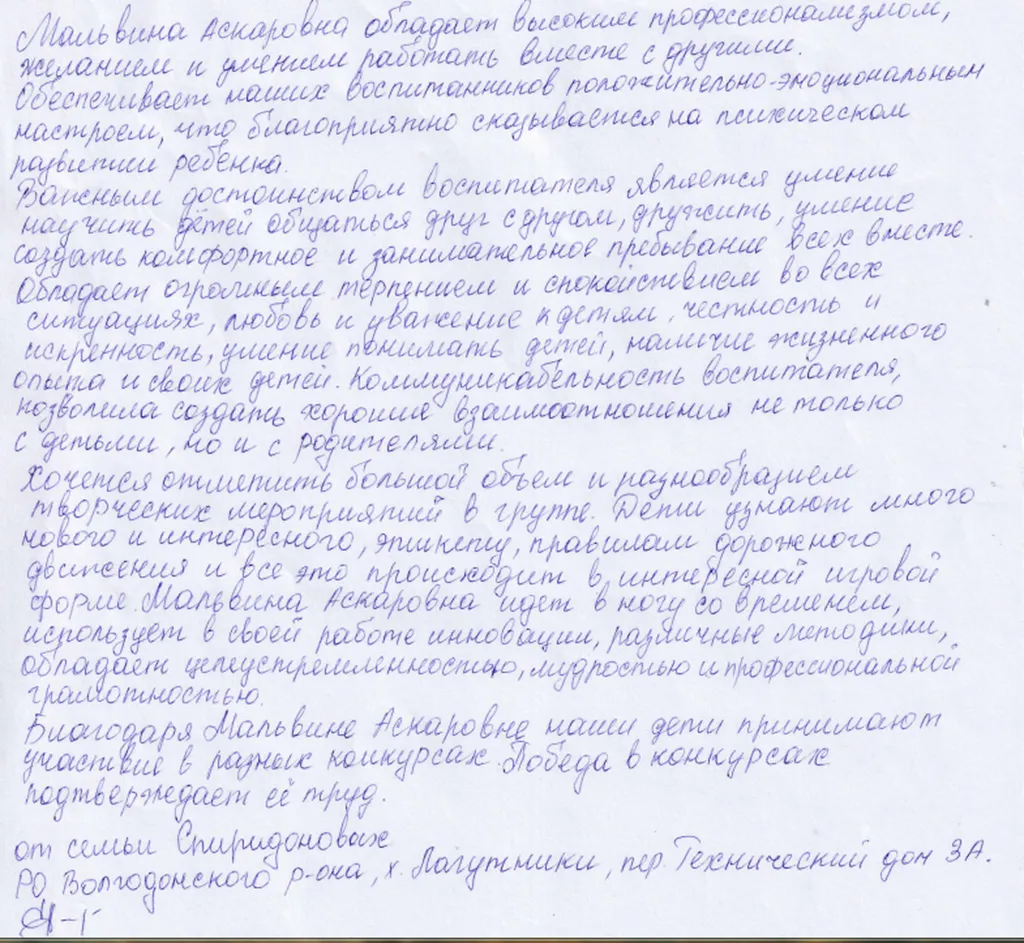 Мальвина Аскаровна обладает высоким профессионализмом,
желанием и умением работать вместе с другими.
Обеспечивает наших воспитанников положительно-эмоциональным
настроем, что благоприятно сказывается на психическом
развитии ребёнка.
Важным достоинством воспитателя является умение
научить детей общаться друг с другом, дружить, умение
создать комфортное и занимательное пребывание всех вместе.
Обладает огромным терпением и спокойствием во всех
ситуациях, любовь и уважение к детям, честность и
искренность, умение понимать детей, наличие жизненного
опыта и своих детей. Коммуникабельность воспитателя,
позволила создать хорошие взаимоотношения не только
с детьми, но и с родителями.
Хочется отметить большой объем и разнообразием
творческих мероприятий в группе. Дети узнают много
нового и интересного, этикету, правилам дорожного
движения и все это происходит в интересной игровой
форме. Мальвина Аскаровна идет в ногу со временем,
использует в своей работе инновации, различные методики,
обладает целеустремленностью, мудростью и профессиональной
грамотностью.
Благодаря Мальвине Аскаровне наши дети принимают
участие в разных конкурсах. Победа в конкурсах
подтверждает её труд.
от семьи Спиридоновых
РО, Волгодонского р-она, х. Лагутники, пер. Технический дом 3А.